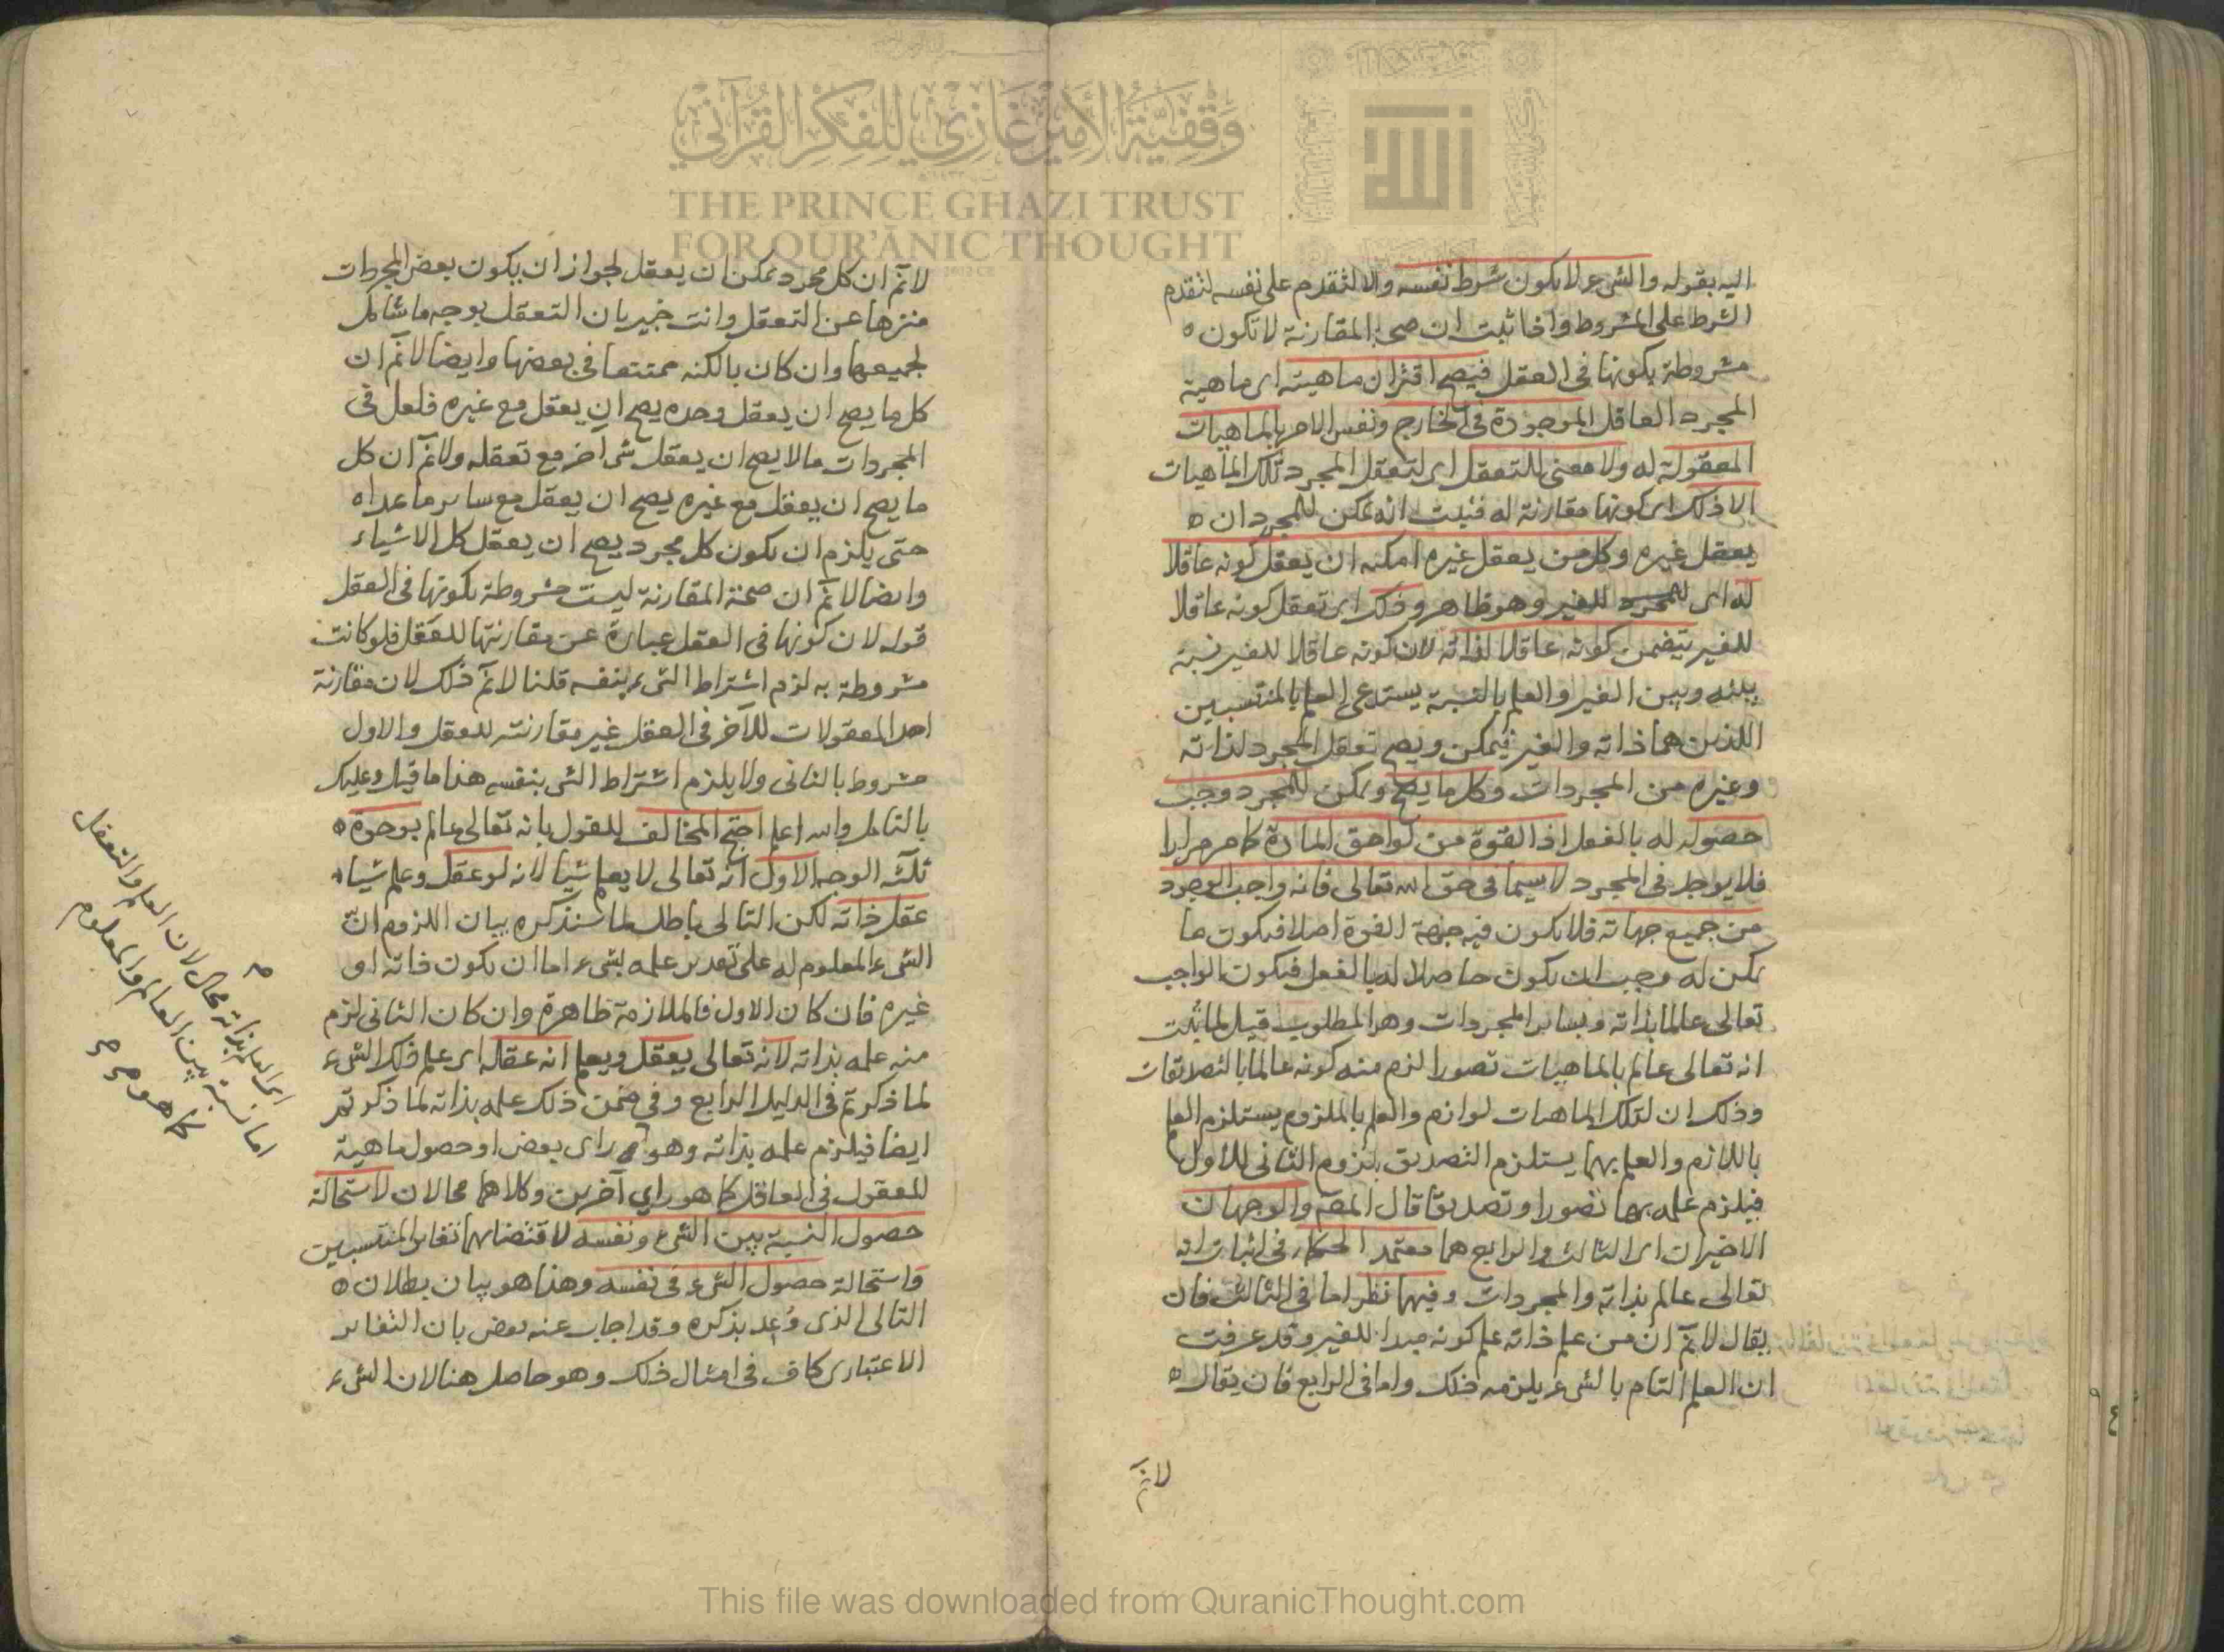 وقفية الأمير غازي للفكر القرآني
THE PRINCE GHAZI TRUST
FOR QUR'ĀNIC THOUGHT
اليه بقوله والشيء لا يكون شرط نفسه والا لتقدم على نفسه لتقدم
الشرط على المشروط واذا ثبت ان صحة المقارنة لا تكون
مشروطة بكونها في العقل فيصح اقتران ماهيته اى ماهية
المجرد العاقل الموجودة في الخارج ونفس الامر بالماهيات
المعقولة له ولا معنى للتعقل اى لتعقل المجرد تلك الماهيات
الا ذلك اى كونها مقارنة له فثبت انه يمكن للمجرد ان
يعقل غيره وكل من يعقل غيره امكنه ان يعقل كونه عاقلا
له اى للغير وهو ظاهر وذلك اى تعقل كونه عاقلا
للغير يتضمن كونه عاقلا لذاته لان كونه عاقلا للغير نسبة
بينه وبين الغير والعلم بالنسبة يستدعى العلم بالمنتسبين
اللذين هما ذاته والغير فيمكن ويصح تعقل المجرد لذاته
وغيره من المجردات وكل ما يصح ويمكن للمجرد وجب
حصوله له بالفعل اذ القوة من لواحق المادة كما مر مرارا
فلا يوجد في المجرد لا سيما في حق الله تعالى فانه واجب الوجود
من جميع جهاته فلا يكون فيه جهة القوة اصلا فيكون ما
يمكن له وجب ان يكون حاصلا له بالفعل فيكون الواجب
تعالى عالما بذاته وبسائر المجردات وهو المطلوب قيل لما ثبت
انه تعالى عالم بالماهيات تصورا لزم منه كونه عالما بالتصديقات
وذلك ان لتلك الماهيات لوازم والعلم بالملزوم يستلزم العلم
باللازم والعلم بهما يستلزم التصديق بلزوم الثاني للاول
فيلزم علمه بهما تصورا وتصديقا قال المصـ والوجهان
الاخيران اى الثالث والرابع هما معتمد الحكماء في اثبات انه
تعالى عالم بذاته والمجردات وفيهما نظر اما في الثالث فان
يقال لانم ان من علم ذاته علم كونه مبدا للغير وقد عرفت
ان العلم التام بالشيء يلزمه ذلك واما في الرابع فان يقال
لانم
لانم ان كل مجرد يمكن ان يعقل لجواز ان يكون بعض المجردات
منزها عن التعقل وانت خبير بان التعقل بوجه ما شامل
لجميعها وان كان بالكنه ممتنعا في بعضها وايضا لانم ان
كل ما يصح ان يعقل وحده يصح ان يعقل مع غيره فلعل في
المجردات ما لا يصح ان يعقل شى آخر مع تعقله ولانم ان كل
ما يصح ان يعقل مع غيره يصح ان يعقل مع سائر ما عداه
حتى يلزم ان يكون كل مجرد يصح ان يعقل كل الاشياء
وايضا لانم ان صحة المقارنة ليست مشروطة بكونها في العقل
قوله لان كونها في العقل عبارة عن مقارنتها للعقل فلو كانت
مشروطة به لزم اشتراط الشيء بنفسه قلنا لانم ذلك لان مقارنة
احد المعقولات للآخر في العقل غير مقارنته للعقل والاول
مشروط بالثاني ولا يلزم اشتراط الشى بنفسه هذا ما قيل وعليك
بالتامل والله اعلم احتج المخالف للقول بانه تعالى عالم بوجوه
ثلثة الوجه الاول انه تعالى لا يعلم شيئا لانه لو عقل وعلم شيئا
عقل ذاته لكن التالى باطل لما سنذكره بيان اللزوم ان
الشيء المعلوم له على تقدير علمه بشيء اما ان يكون ذاته او
غيره فان كان الاول فالملازمة ظاهرة وان كان الثاني لزم
منه علمه بذاته لانه تعالى يعقل ويعلم انه عقله اى علم ذلك الشيء
لما ذكرتم في الدليل الرابع وفي ضمن ذلك علمه بذاته لما ذكرتم
ايضا فيلزم علمه بذاته وهو راى بعض او حصول ماهية
المعقول في العاقل كما هو راي آخرين وكلاهما محالان لاستحالة
حصول النسبة بين الشيء ونفسه لاقتضائها تغاير المنتسبين
واستحالة حصول الشيء في نفسه وهذا هو بيان بطلان
التالى الذى وُعِد بذكره وقد اجاب عنه بعض بان التغاير
الاعتبارى كاف في امثال ذلك وهو حاصل هنا لان الشيء
اى العلم بذاته محال لان العلم والتعقل
اما نسبة بين العالم والمعلوم
كما هو
This file was downloaded from QuranicThought.com